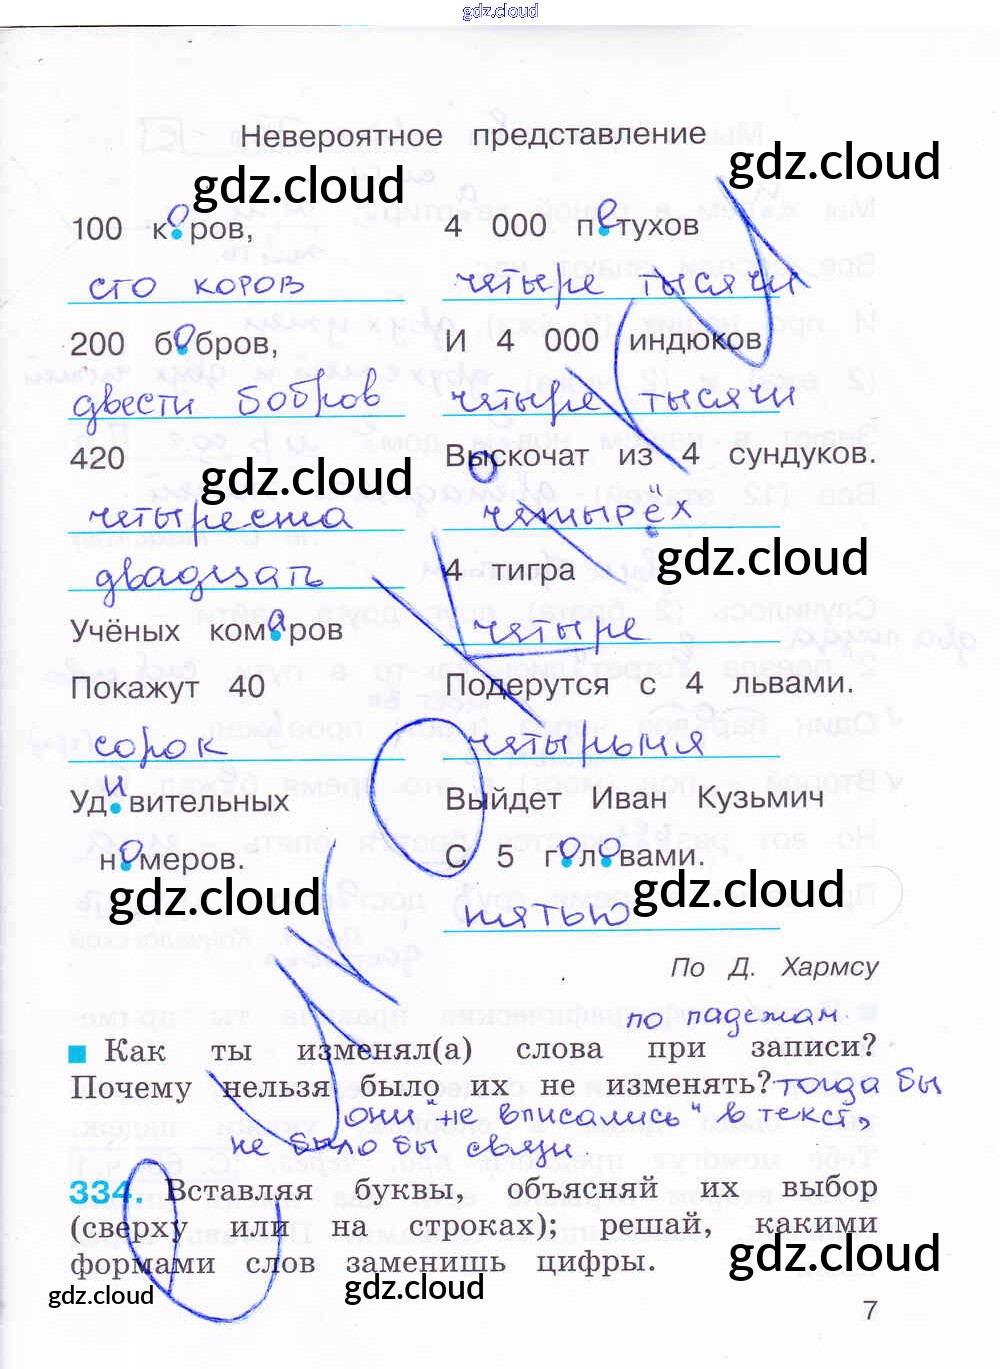 gdz.cloud
Невероятное представление
gdz.cloud
gdz.cloud
100 коров,
сто коров
200 бобров,
двести бобров
420
gdz.cloud
четыреста
двадцать
Учёных комаров
Покажут 40
сорок
Удивительных
номеров.
gdz.cloud
4 000 петухов
четыре тысячи
И 4 000 индюков
четыре тысячи
Выскочат из 4 сундуков.
четырёх
gdz.cloud
4 тигра
четыре
Подерутся с 4 львами.
четырьмя
Выйдет Иван Кузьмич
С 5 головами.
gdz.cloud
пятью
По Д. Хармсу
по падежам.
Как ты изменял(а) слова при записи?
Почему нельзя было их не изменять? тогда бы
они "не вписались" в текст,
не было бы связи.
334. Вставляя буквы, объясняй их выбор
(сверху или на строках); решай, какими
формами слов заменишь цифры.
gdz.cloud
gdz.cloud
gdz.cloud
7